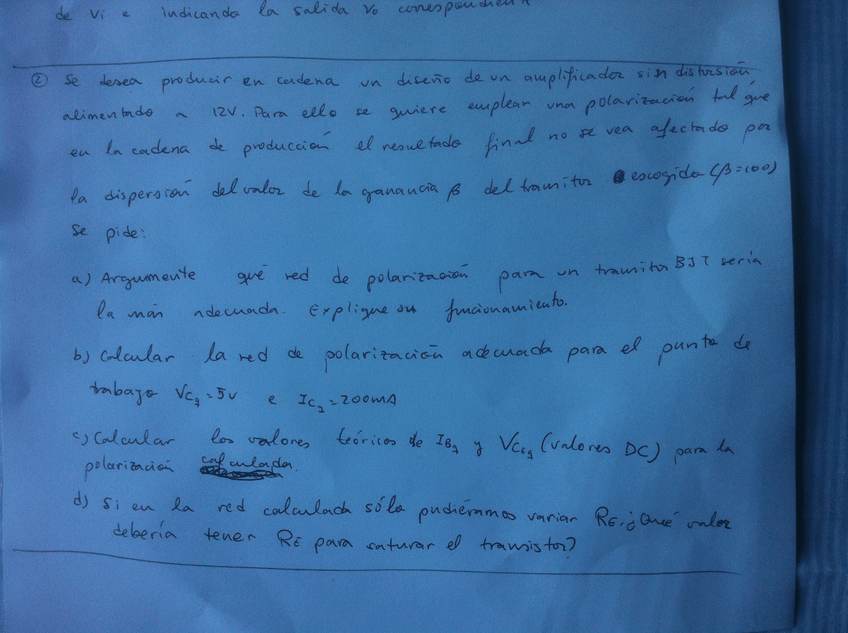 de Vi e indicando la salida Vo correspondiente
② Se desea producir en cadena un diseño de un amplificador sin distorsión
alimentado a 12V. Para ello se quiere emplear una polarización tal que
en la cadena de producción el resultado final no se vea afectado por
la dispersión del valor de la ganancia β del transitor escogido (β=100)
Se pide:
a) Argumente qué red de polarización para un transitor BJT sería
la más adecuada. Explique su funcionamiento.
b) Calcular la red de polarización adecuada para el punto de
trabajo VC = 5V e IC = 200mA
c) Calcular los valores teóricos de IB y VCE (valores DC) para la
polarización calculada.
d) Si en la red calculada sólo pudiéramos variar RE. ¿Qué valor
debería tener RE para saturar el transistor?